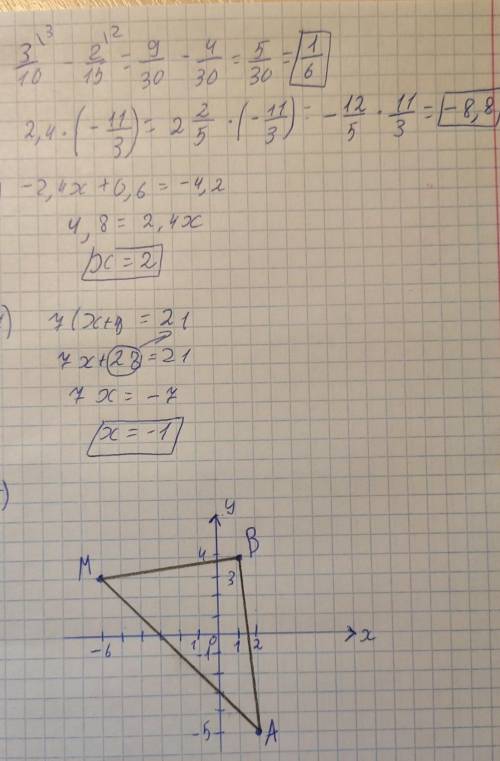 3/10 \3 - 2/15 \2 = 9/30 - 4/30 = 5/30 = 1/6
2,4 · (-11/3) = 2 2/5 · (-11/3) = -12/5 · 11/3 = -8,8
-2,4x + 0,6 = -4,2
4,8 = 2,4x
x = 2
) 7(x+4 = 21
7x + 28 = 21
7x = -7
x = -1
)
y
4 B
M
3
-6 1 0 1 2 x
-1
-5 A